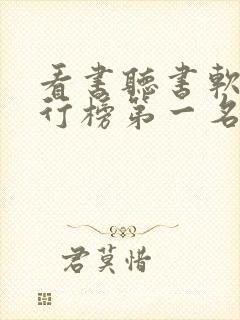 看書聽書軟
行榜第一名
君莫惜